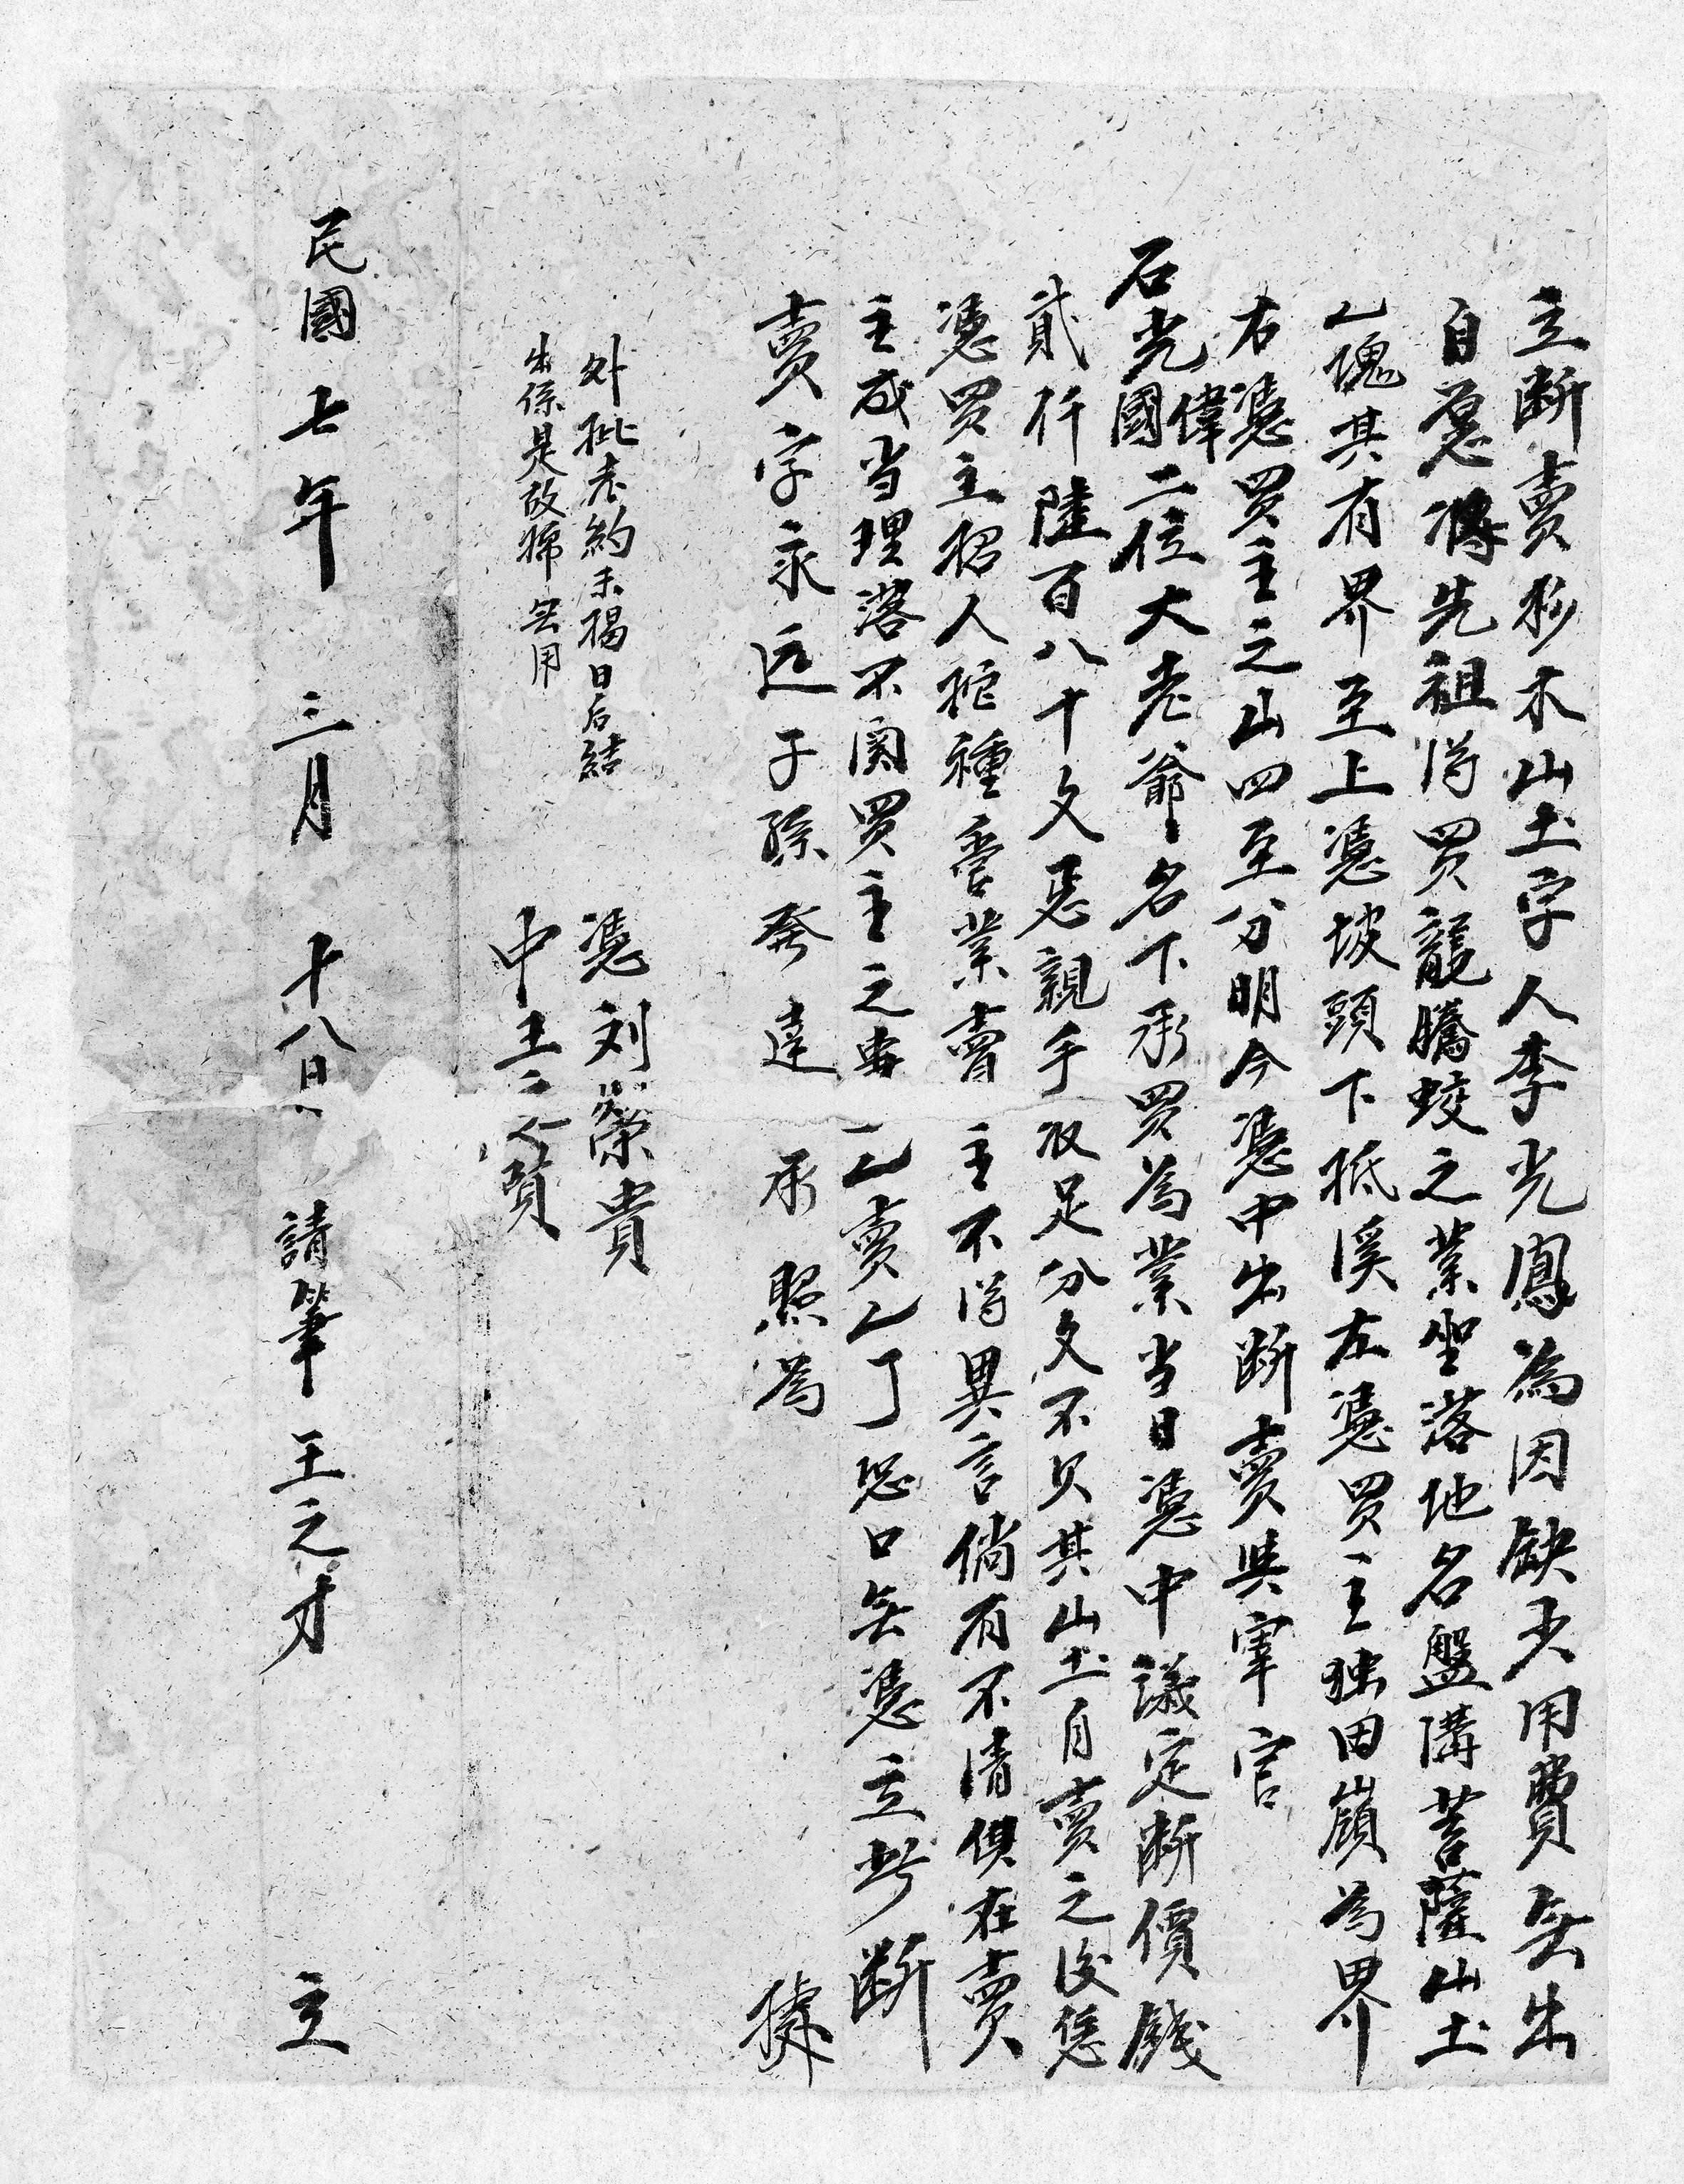 立断賣杉木山土字人李光鳳為因缺少用費無出
自愿將先祖得買龍騰蛟之業坐落地名盤溝菩薩山土
乙塊其有界至上憑坡頭下抵溪左憑買主独田嶺為界
右憑買主之山四至分明今憑中出断賣與寨官
石光國偉二位大老爺名下承買為業当日憑中議定断價錢
貳仟陸百八十文惡親手収足分文不欠其山土自賣之後恁
憑買主招人挖種營業賣主不得異言倘有不清俱在賣
主成当理落不関買主之事一乙賣乙了恐口無憑立此断
賣字永远子孫發達承照為據
外批老約未揭日后結
出係是故紙無用
憑刘榮貴
中王之賢
民國七年三月十八日請筆王之才立